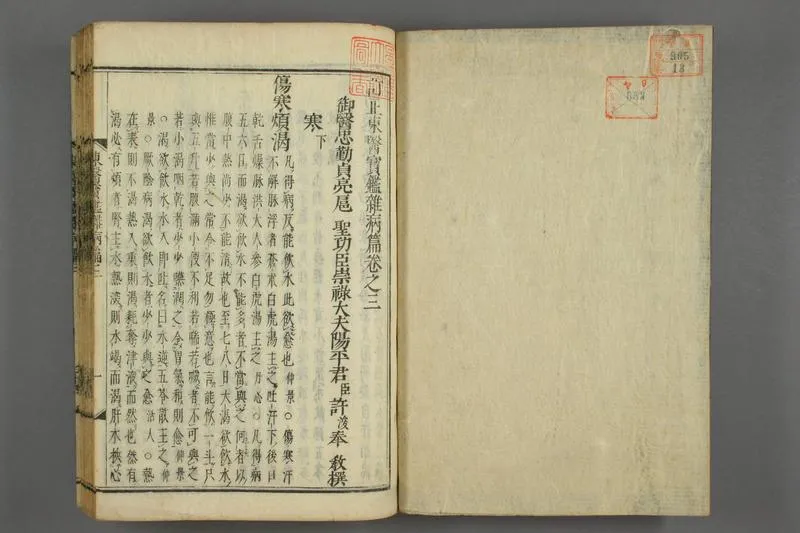 訂正東醫寶鑑雜病篇卷之三
御醫忠勤貞亮扈 聖功臣崇祿大夫陽平君臣許浚奉 敎撰
寒下
傷寒煩渴 凡得病反能飮水此欲愈也仲景○傷寒汗
不解脉浮者蒼朮白虎湯主之吐汗下後口
乾舌燥脉洪大人參白虎湯主之丹心○凡得病
五六日而渴欲飮水不能多者不當與之何者以
腹中熱尙少不能消故也至七八日大渴欲飮水
惟當少與之常令不足勿極意也言能飮一斗只
與五升若腹滿小便不利若喘若噦者不可與之
若小渴咽乾者少少與潤之令胃氣和則愈仲景
○渴欲飮水水入卽吐名曰水逆五苓散主之仲
景○厥陰病渴欲飮水者少少與之愈活人○熱
在表則不渴熱入裏則渴耗奪津液而然也然有
渴必有煩者腎主水熱淡則水竭而渴肝木挾心